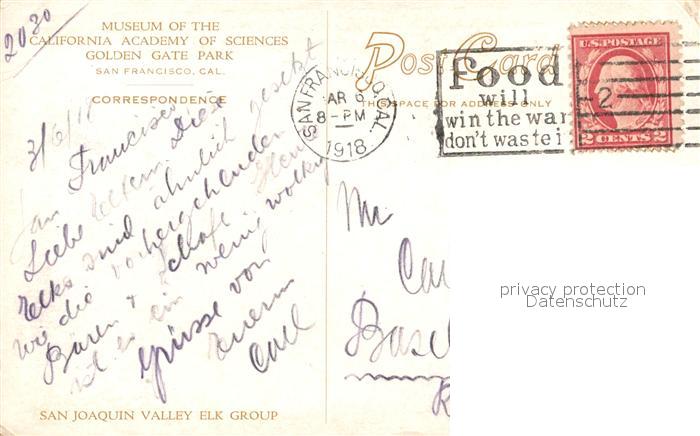 2030
MUSEUM OF THE
CALIFORNIA ACADEMY OF SCIENCES
GOLDEN GATE PARK
SAN FRANCISCO, CAL.
CORRESPONDENCE
3/6/18
San Francisco
Liebe Eltern, Diese
Elks sind ähnlich gesetzt
wie die vorhergehenden
Bären & Schafe. Heute
ist es ein wenig wolkig
Grüsse von
Eurem
Carl
SAN JOAQUIN VALLEY ELK GROUP
Post Card
THIS SPACE FOR ADDRESS ONLY
SAN FRANCISCO, CAL.
AR 6
8-PM
1918
Food
will
win the war
don't waste i
U.S. POSTAGE
2
2 CENTS 2
Mr
Ca
Basel
privacy protection
Datenschutz